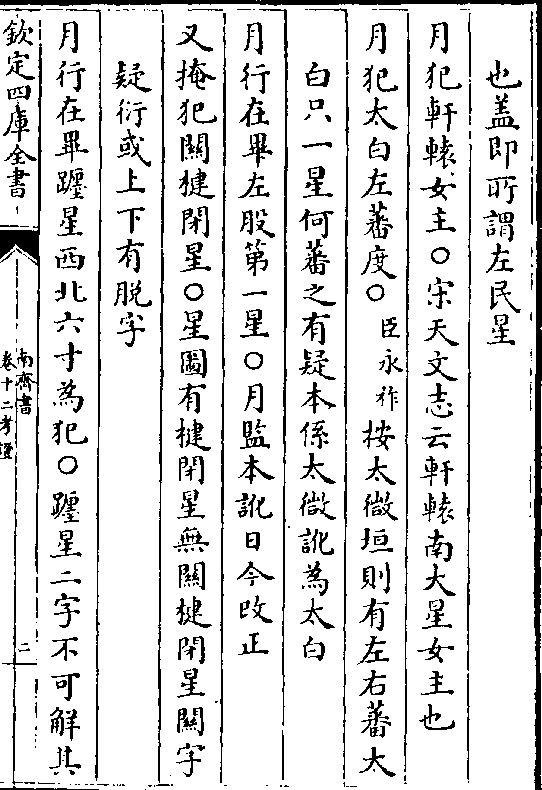 也盖即所謂左民星
月犯軒轅女主○宋天文志云軒轅南大星女主也
月犯太白左蕃度○臣永祚按太微垣則有左右蕃太
白只一星何蕃之有疑本係太微訛為太白
月行在畢左股第一星○月監本訛日今改正
又掩犯關楗閉星○星圖有楗閉星無關楗閉星關字
疑衍或上下有脱字
月行在畢躔星西北六寸為犯○躔星二字不可解其
欽定四庫全書
南齊書
卷十二考證
二